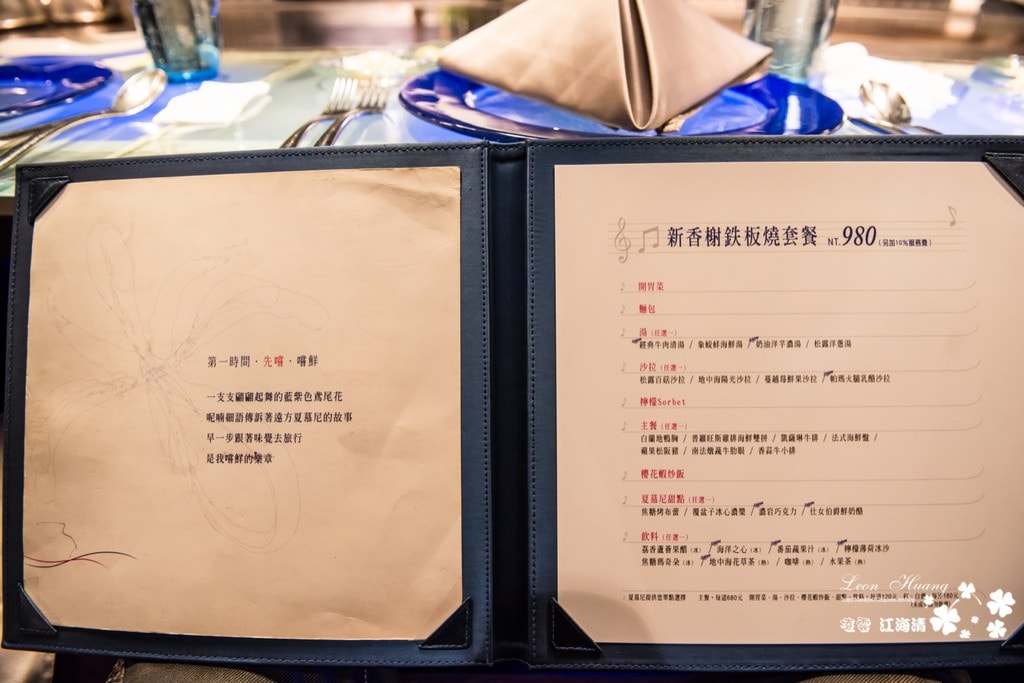 第一時間・先嚐・嚐鮮
一支支翩翩起舞的藍紫色鳶尾花
呢喃細語傳訴著遠方夏慕尼的故事
早一步跟著味覺去旅行
是我嚐鮮的樂章
新香榭鉄板燒套餐 NT.980(另加10%服務費)
開胃菜
麵包
湯(任選一)
經典牛肉清湯 / 象鮫蚌海鮮湯 / 奶油洋芋濃湯 / 松露洋蔥湯
沙拉(任選一)
松露百菇沙拉 / 地中海陽光沙拉 / 蔓越莓鮮果沙拉 / 帕瑪火腿乳酪沙拉
檸檬Sorbet
主餐(任選一)
白蘭地鴨胸 / 普羅旺斯雞排海鮮雙拼 / 凱薩琳牛排 / 法式海鮮盤 /
蘋果松阪豬 / 南法燉蔬牛肋眼 / 香蒜牛小排
櫻花蝦炒飯
夏慕尼甜點(任選一)
焦糖烤布蕾 / 覆盆子冰心濃漿 / 濃岩巧克力 / 仕女伯爵鮮奶酪
飲料(任選一)
荔香蘆薈果醋(冰) / 海洋之心(冰) / 番茄蔬果汁(冰) / 檸檬薄荷冰沙
焦糖瑪奇朵(冰) / 地中海花草茶(熱) / 咖啡(熱) / 水果茶(熱)
夏慕尼提供您單點選擇 主餐，每道680元 開胃菜、湯、沙拉、櫻花蝦炒飯、甜點、飲料，每道120元
Leon Huang
江海清